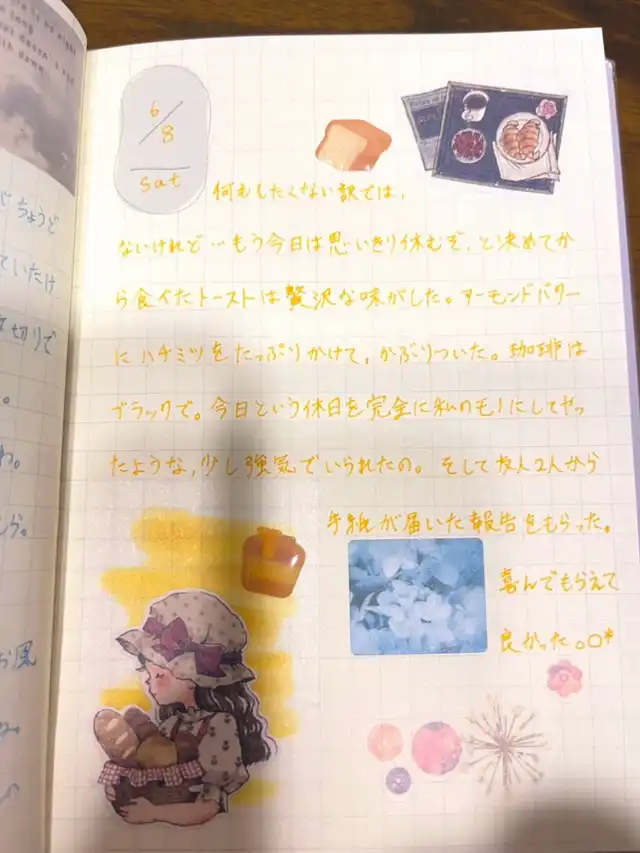 ng
but doesn't
6/8
sat
何もしたくない訳では、
ないけれど…もう今日は思いきり休むぞ、と決めてか
ら食べたトーストは贅沢な味がした。アーモンドバター
にハチミツをたっぷりかけて、かぶりついた。珈琲は
ブラックで。今日という休日を完全に私のモノにしてやっ
たような、少し強気でいられたの。そして友人2人から
手紙が届いた報告をもらった。
喜んでもらえて
良かった。○*
ちょうど
ていたけ
切りで
。
お風